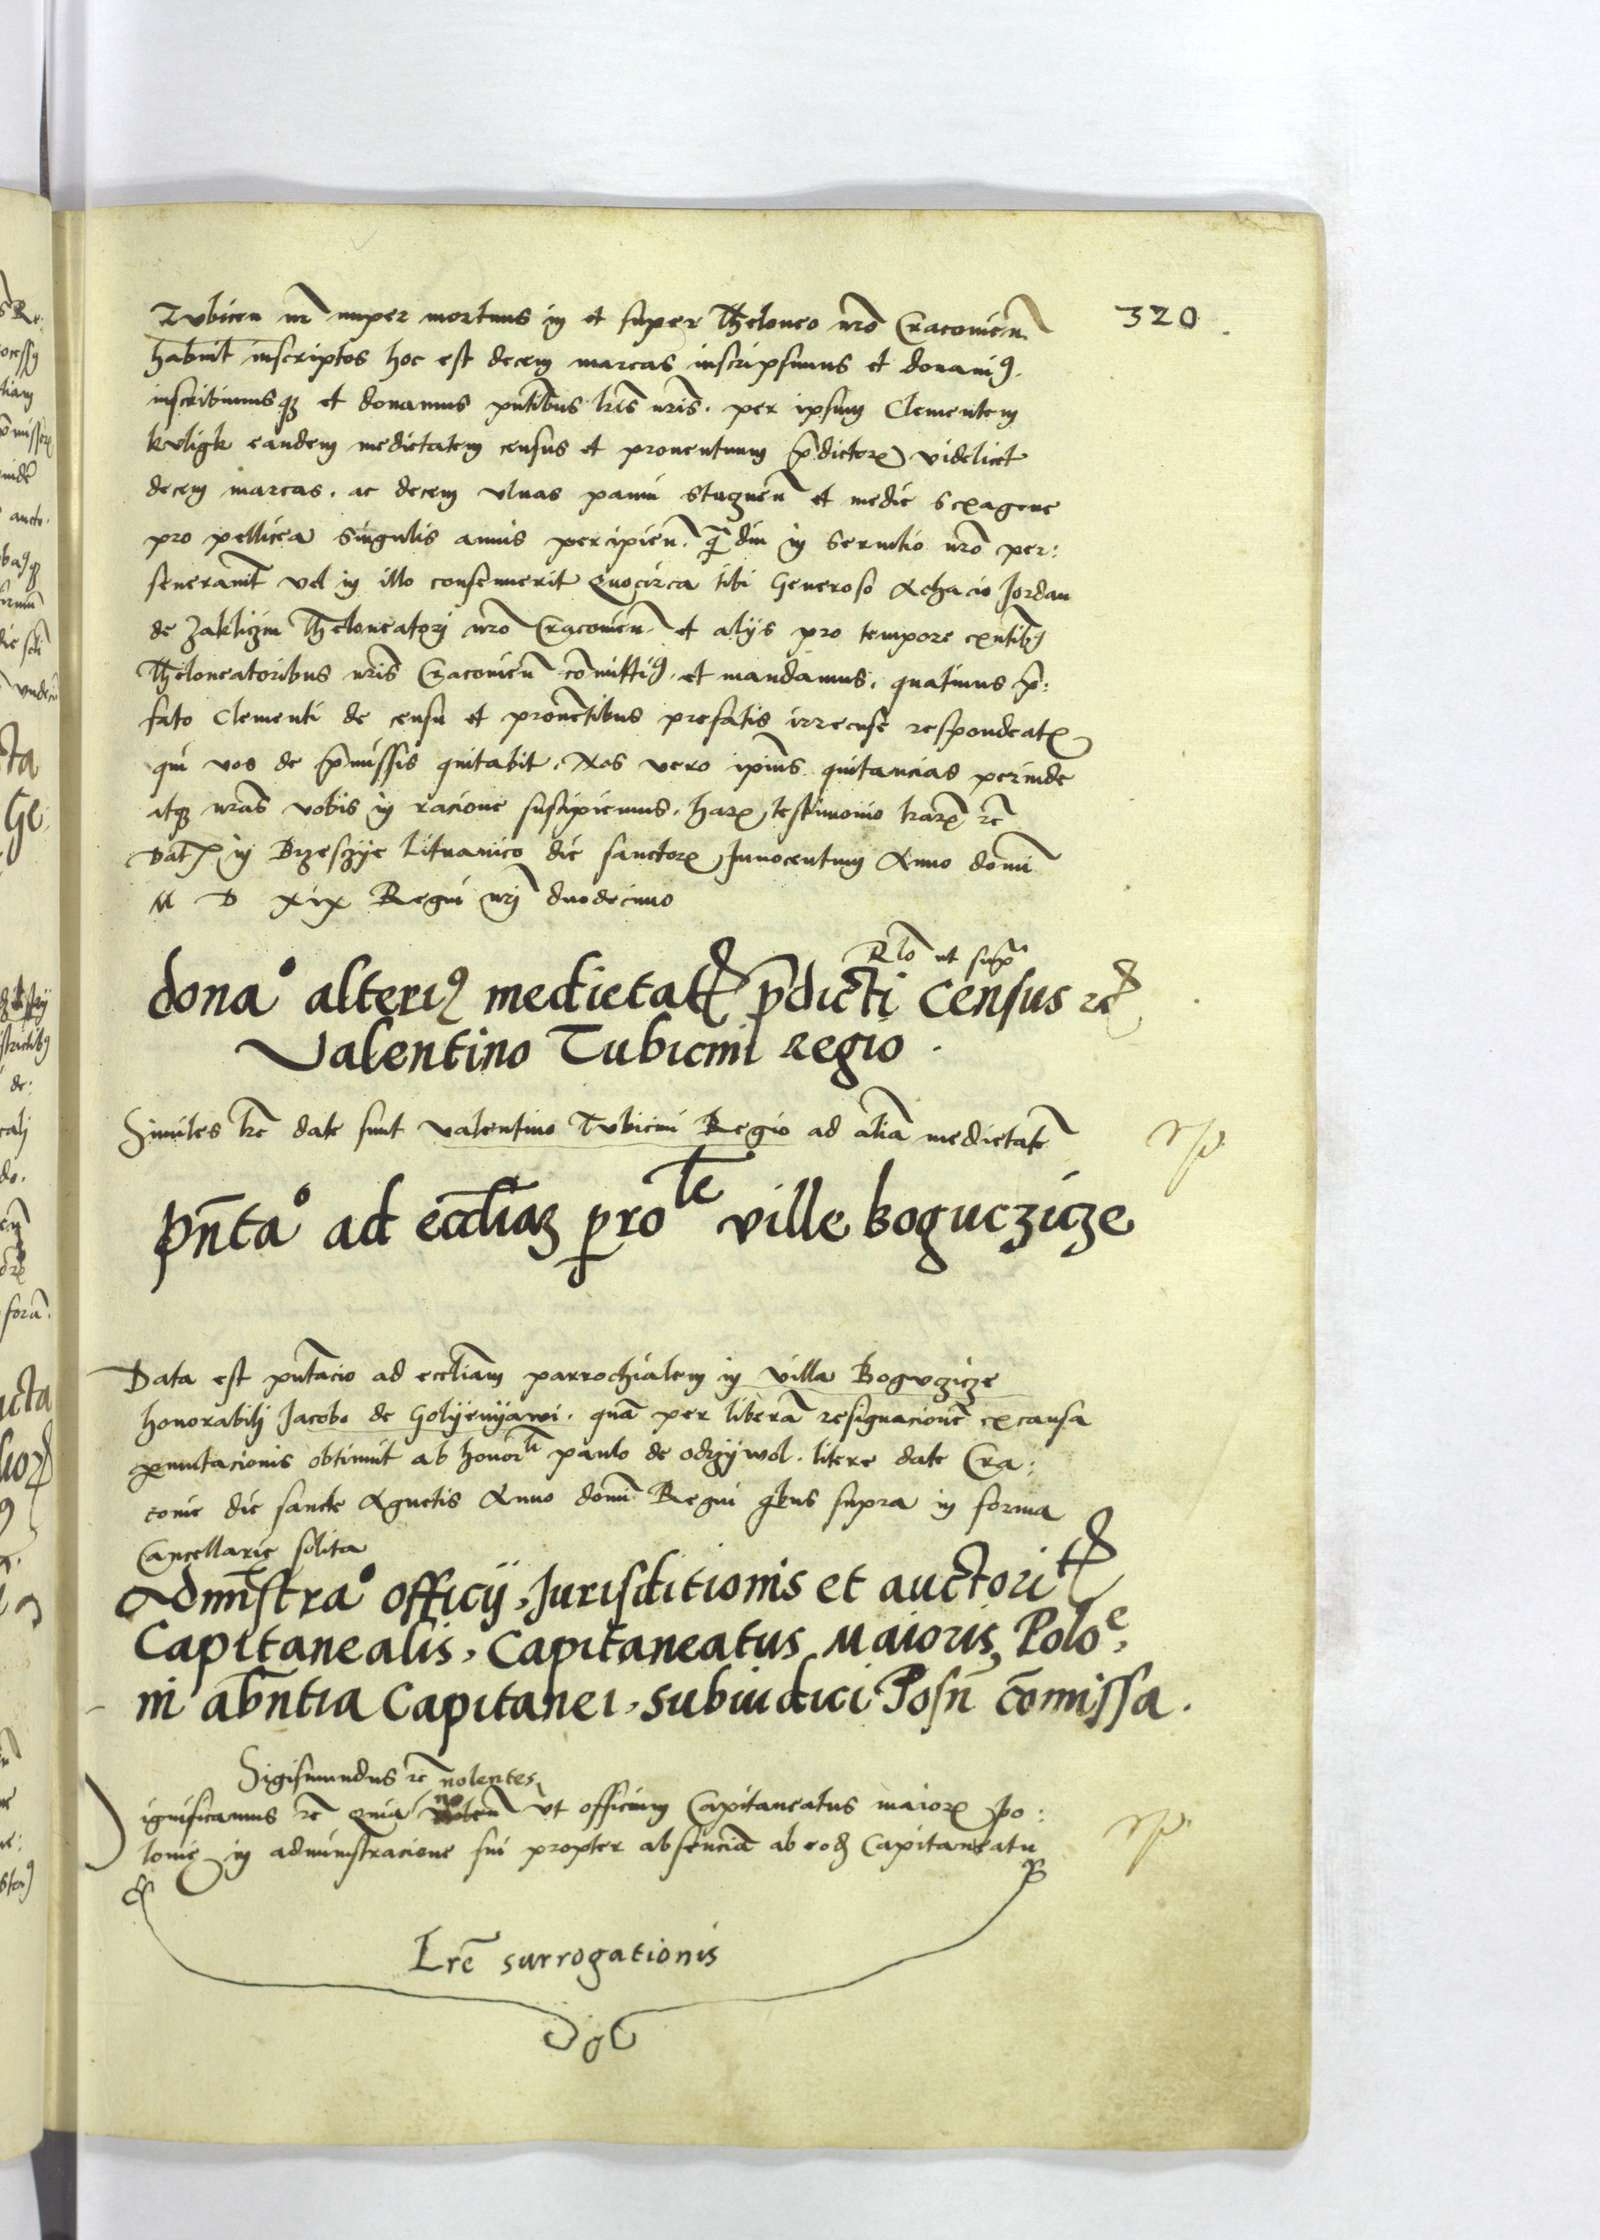 320
Tubicen nr̃ nuper mortuus in et super Theloneo nr̃o Cracovien̄
habuit inscriptos hoc est decem marcas inscripsimus et donavimꝰ
inscribimusqꝫ et donamus pn̄tibus lr̃is nr̃is. per ipsum Clementem
kuligk eandem medietatem census et proventuum p̄dictoꝝ videlicet
decem marcas. ac decem ulnas panni et medie sexagene
pro pellicea singulis annis percipien̄. qͣ diu in servitio nr̃o per:
severaverit vel in illo consenuerit Quocirca tibi Generoso Achacio Jordan
de Zakliczin Theloneatori nr̃o Cracovien̄. et alijs pro tempore exn̄tibꝰ
Theloneatoribus nr̃is Cracovien̄ cōmittimꝰ. et mandamus. quatinus p̄:
fato Clementi de censu et provētibus prefatis respondeatꝭ
qui vos de p̄missis quitabit. Nos vero ip̄ius quitancias perinde
atqꝫ nr̃as vobis in racione suscipiemus. haꝝ testimonio lr̃aꝝ ꝛc̄
Datꝭ in Brzeszije lituanico die sanctoꝝ Innocentum Anno domi
M D xix Regni nr̃i duodecimo
Rlo ut supͣ
dona° alteriꝰ medietatꝭ p̄dicti Census ꝛc̄
Valentino Tubicini regio.
Similes lr̃e date sunt valentino Tubicini Regio ad aliā medietatē
Pn̄ta° ad eccl̄iaꝫ ꝑroˡᵉ ville boguczicze
Data est pn̄tacio ad eccl̄iam parrochialem in villa Bogvczicze
honorabili Jacobo de Golyenyawi. quā per liberā resignacionē ex causa
ꝑmutacionis obtinuit ab honorˡⁱ paulo de odrzywol. litere date Cra:
covie die sancte Agnetis Anno domi Regni qͥbus supra in forma
Cancellarie solita
Admīstra° officij, Jurisditionis et auctoritꝭ
Capitanealis, Capitaneatus Maioris Poloᵉ,
in abn̄tia Capitanei, subiudici Posn̄ cōmissa.
Sigismundus ꝛc̄ nolentes
ignificamus ꝛc̄ Quia ut officium Capitaneatus maioꝝ Po:
lonie in administracione sui propter absenciā ab eod̄ Capitaneatu
Lr̃e surrogationis